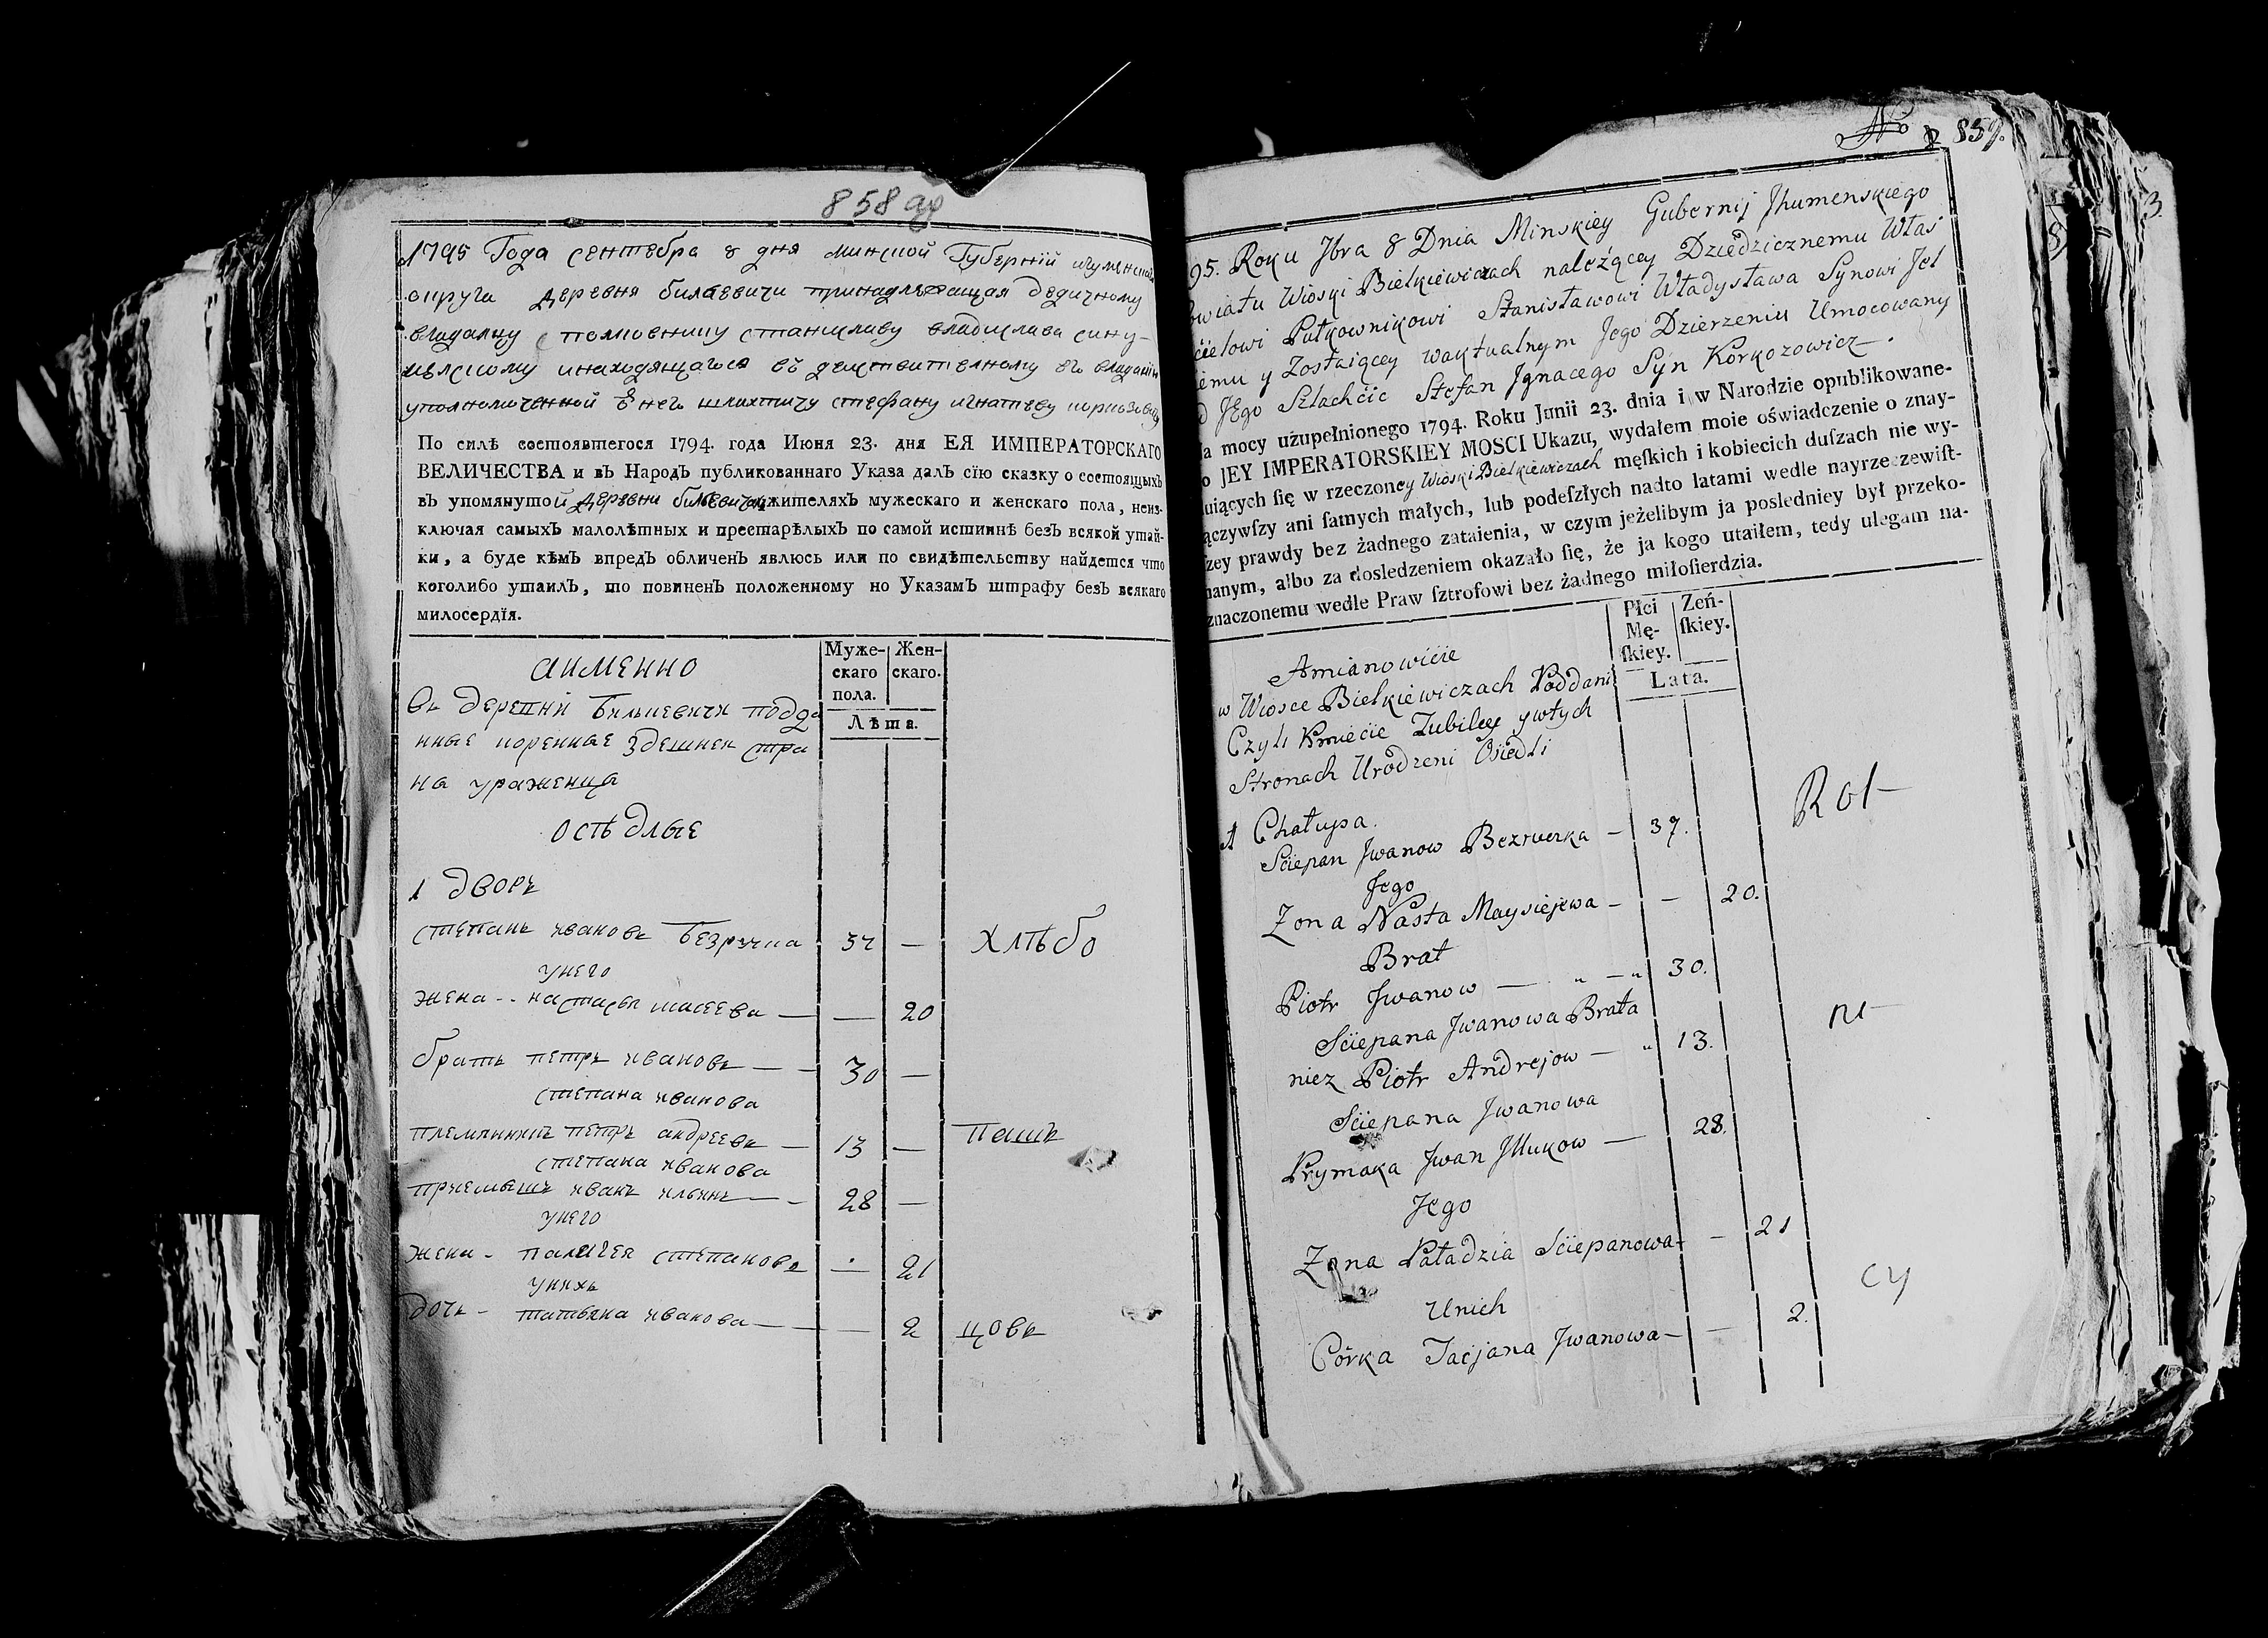 858 об
1795 Года сентебра 8 дня минской Губерніи игуменскаго
округа деревня билкевичи принадлежащая дедичному
владелцу полковнику станиславу владислава сину
иелскому инаходящагося въ действителному его владаніи
уполномоченной ѿ него шляхтичу стефану игнатеву коркозовичу
По силѣ состоявшегося 1794. года Июня 23. дня ЕЯ ИМПЕРАТОРСКАГО
ВЕЛИЧЕСТВА и въ Народъ публикованнаго Указа далъ сїю сказку о состоящыхъ
въ упомянутой деревни билкевичи жителяхъ мужескаго и женскаго пола, неиз-
ключая самыхъ малолѣтныхъ и престарѣлыхъ по самой истиннѣ безъ всякой утай-
ки, а буде кѣмъ впредъ обличенъ явлюсь или по свидѣтельству найдется что
коголибо утаилъ, то повиненъ положенному по Указамъ штрафу безъ всякаго
милосердїя.
Муже-
скаго
пола.
Жен-
скаго.
Лѣта.
аименно
въ деревни Билкевичи подда
нные коренные здешнеи стра
на ураженца
осѣдлые
1 дворъ
степанъ ивановъ Безручка 37 —
хлѣбо
у него
жена - - настасья масеева — — 20
братъ петръ ивановъ — — 30 —
степана иванова
племянникъ петръ андреевъ — 13 —
пашъ
степана иванова
приемышъ иванъ ильинъ — - 28 —
у него
жена - палагея степанова — 21
у нихъ
дочь - татьяна иванова — — — 2
цовъ
No 859.
95. Roku 7bra 8 Dnia Minskiey Gubernij Jhumenskiego
owiatu Wioski Bielkiewiczach należącey Dziedzicznemu Włas
cielowi Pułkownikowi Stanisławowi Władysława Synowi Jel
emu y Zostaiącey waktualnym Jego Dzierzeniu Umocowany
d Jego Szlachcic Stefan Jgnacego Syn Korkozowicz.
a mocy uzupełnionego 1794. Roku Junii 23. dnia i w Narodzie opublikowane-
o JEY IMPERATORSKIEY MOSCI Ukazu, wydałem moie oświadczenie o znay-
uiących ſię w rzeczoney Wioski Bielkiewiczach męſkich i kobiecich duſzach nie wy-
ączywſzy ani ſamych małych, lub podeſzłych nadto latami wedle nayrzeczewiſt-
zey prawdy bez żadnego zataienia, w czym jeżelibym ja posledniey był przeko-
nanym, albo za dosledzeniem okazało ſię, że ja kogo utaiłem, tedy ulegam na-
znaczonemu wedle Praw ſztrofowi bez żadnego miłoſierdzia.
Płci
Mę-
ſkiey.
Zeń-
ſkiey.
Lata.
Amianowicie
w Wiosce Bielkiewiczach Poddani
Czyli Kmiecie Tubilcy ywtych
Stronach Urodzeni Osiedli
1 Chałupa.
Sciepan Jwanow Bezruczka — 37.
Rol-
Jego
Zona Nasta Maysiejewa — — 20.
Brat
Piotr Jwanow — 30.
Sciepana Jwanowa Brata
niez Piotr Andrejow — 13.
ni-
Sciepana Jwanowa
Prymaka Jwan Jllukow — 28.
Jego
Zona Paładzia Sciepanowa — — 21
Unich
cy
Córka Tacjana Jwanowa — — 2.